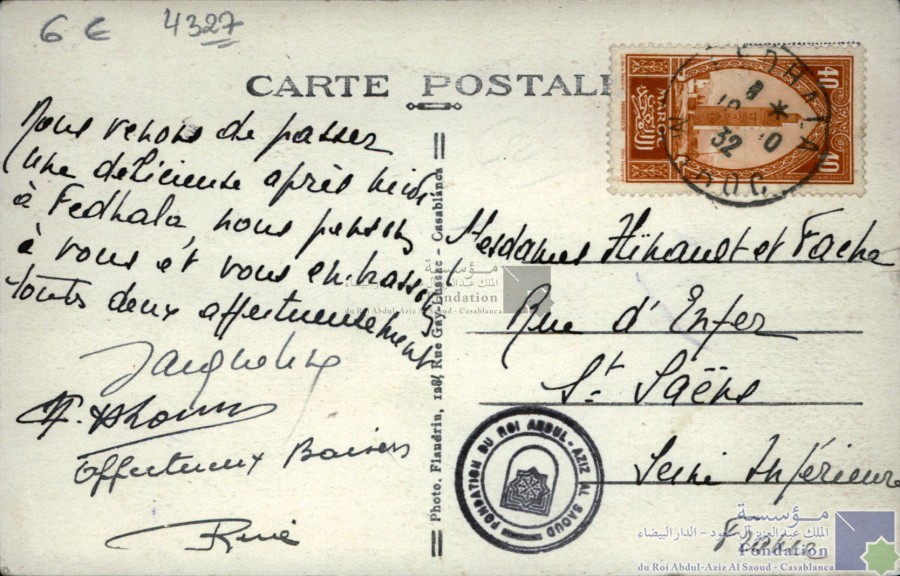 6 € 4327
CARTE POSTALE
Nous venons de passer
une délicieuse après midi
à Fedhala nous pensons
à vous et vous embrassons
toutes deux affectueusement
Jacqueline
Affectueux Baisers
René
Photo. Flandrin, 128, Rue Gay-Lussac - Casablanca
40 MAROC 40
FEDHALA
32
MAROC
Mesdames et
Rue d'Enfer
St Saëns
Seine Inférieure
France
FONDATION DU ROI ABDUL-AZIZ AL SAOUD
مؤسسة
الملك عبد العزيز آل سعود - الدار البيضاء
Fondation
du Roi Abdul-Aziz Al Saoud - Casablanca
مؤسسة
الملك عبد العزيز آل سعود - الدار البيضاء
Fondation
du Roi Abdul-Aziz Al Saoud - Casablanca